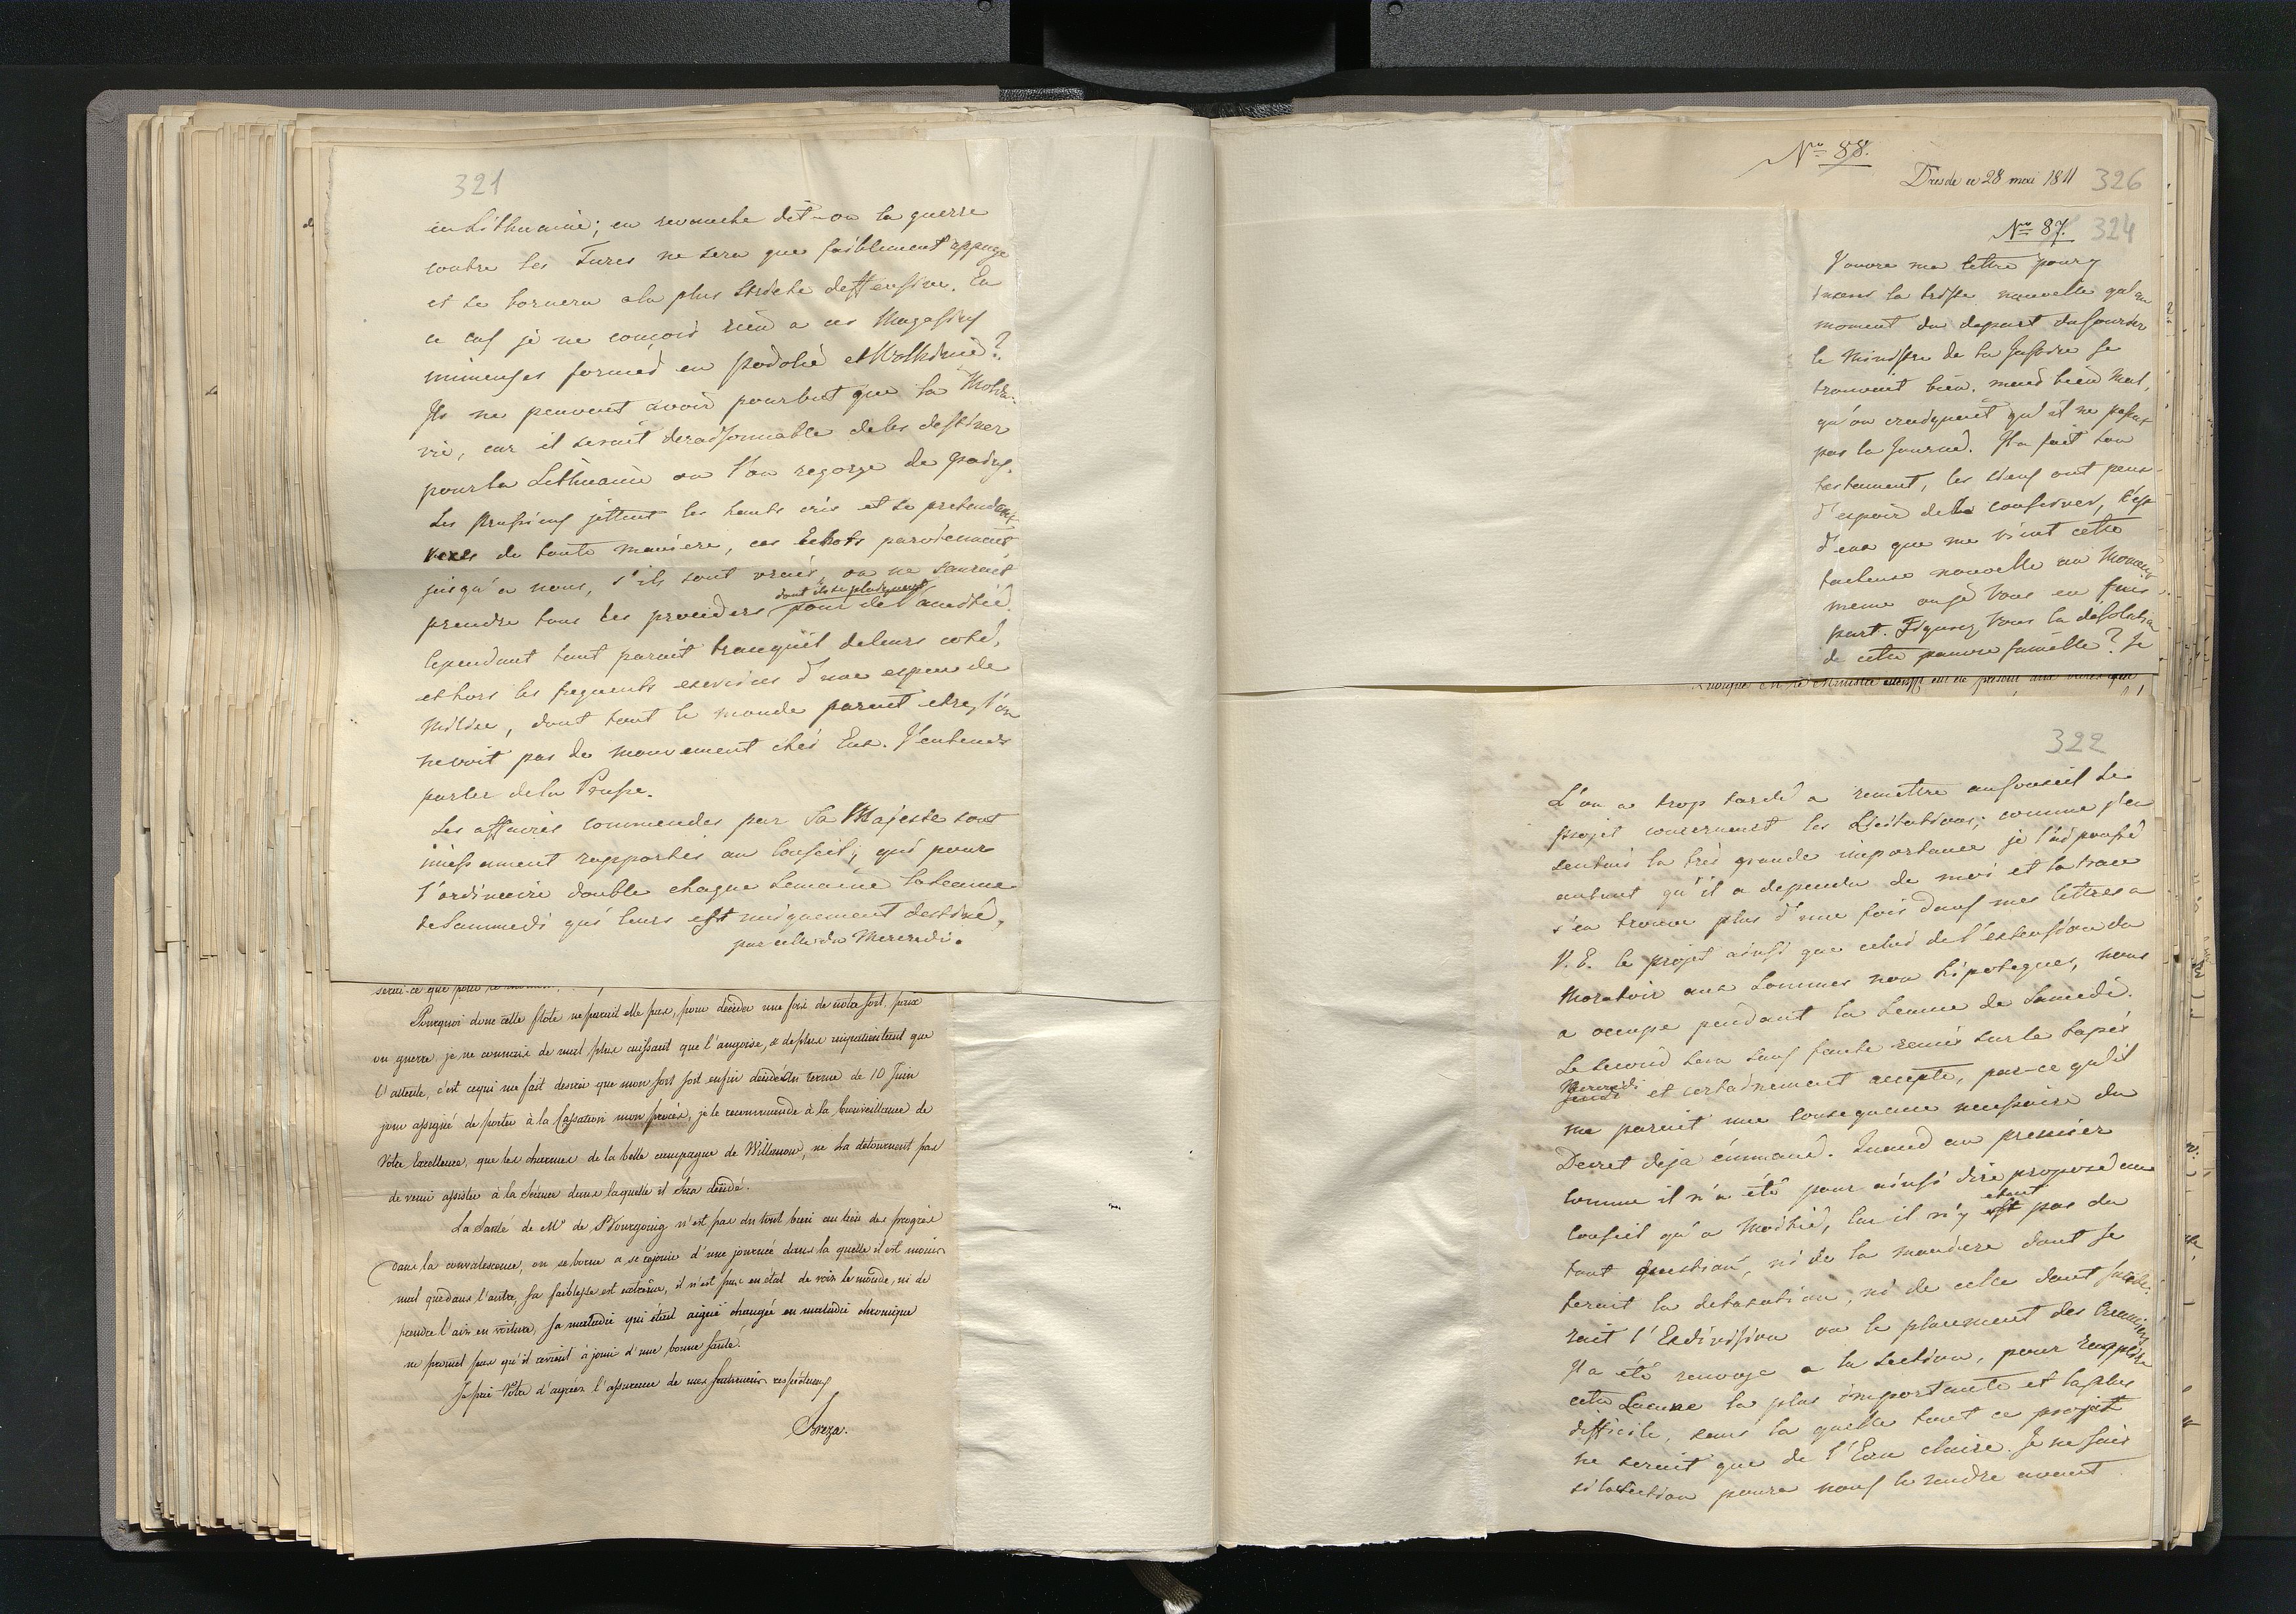 321
en Lithuanie; en revanche dit-on la guerre
contre les Turcs ne sera que faiblement appuyé
et se bornera a la plus stricte deffensive. En
ce cas je ne conçois rien a ces Magasins
immenses formés en Podolie et Wolhinie?
Ils ne peuvent avoir pour but que la Molda-
vie, car il serait deraisonnable de les destiner
pour la Lithuanie ou l'on regorge de grains.
Les Prussiens jettent les hauts cris et se pretendent
vexés de toute maniere, ces Echots parviennent
jusqu'a nous, s'ils sont vrais, on ne saurait
dont ils se plaignent
prendre tous les procédés pour de l'amitié.
Cependant tout parait tranquil de leurs coté,
et hors les frequents exercices d'une espece de
Milice, dont tout le monde parait etre, l'on
ne voit pas de mouvement chés Eux. J'entends
parler de la Prusse.
Les affaires commendés par Sa Majesté sont
incessament rapportés au Conseil, qui pour
l'ordinaire double chaque semaine la seance
de Sammedi qui leurs est uniquement destiné,
par celle du Mercredi.
Pourquoi donc cette flote ne parait elle pas, pour décider une fois de notre sort, paix
ou guerre, je ne connais de mal plus cuissant que l'angoise, & de plus impatientant que
l'attente, c'est ce qui me fait desirer que mon sort soit enfin décidé. Un terme de 10 Juin
jour assigné de porter à la Cassation mon procès, je le recommande à la bienveillance de
Votre Excellence, que les charmes de la belle campagne de Willanow, ne La détournent pas
de venir assister à la Séance dans laquelle il sera décidé.
La Santé de Mr de Bourgoing n'est pas du tout bien au lieu des progrès
dans la convalescence, on se borne a se rejouir d'une journée dans la quelle il est moins
mal que dans l'autre, sa faiblesse est extrême, il n'est pas en état de voir le monde, ni de
prendre l'air en voiture, sa maladie qui était aiguë changée en maladie chronique
ne promet pas qu'il revient à jouir d'une bonne santé.
Je prie Votre d'agréer l'assurance de mes sentimens respectueux
Breza.
No 88.
Dresde ce 28 mai 1811 326
No 87. 324
J'ouvre ma lettre pour y
inserer la triste nouvelle qu'au
moment du depart du Courier
le Ministre de la Justice se
trouvait bien. mais bien mal,
qu'on craignait qu'il ne passat
pas la Journé. Il a fait son
testament, les siens ont peu
d'espoir de le conserver, c'est
d'eux que me vient cette
facheuse nouvelle au Moment
meme ou je Vous en fais
part. Figurez Vous la désolation
de cette pauvre famille? Je
322
L'on a trop tardé a remettre au Conseil le
projet concernant les Licitations; comme j'en
sentais la très grande importance je l'ai poussé
autant qu'il a dependu de moi et la trace
s'en trouve plus d'une fois dans mes lettres a
V. E. le projet ainsi que celui de l'extension du
Moratoir aux Sommes non hipoteques, nous
a occupé pendant la seance de Samedi.
Le second sera sans faute remis sur le tapis
Mercredi
Jeudi et certainement accepté, par-ce qu'il
me parait une consequence necessaire du
Decret deja émmané. Quand au premier
comme il n'a été pour ainsi dire proposé au
étant
Conseil qu'a Moitié, car il n'y est pas du
tout question, ni de la maniere dont se
ferait la detaxation, ni de celle dont
rait l'Exdivision ou le placement des Creanciers
Il a été renvoyé a la section, pour remplire
cette Lacune la plus importante et la plus
difficile, sans la quelle tout ce projet
ne serait que de l'Eau claire. Je ne sais
si la Section poura nous le rendre avant